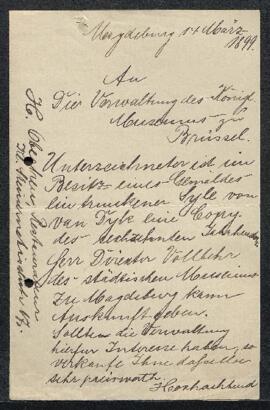 Magdeburg 14 März
1899.
An
Die Verwaltung des Königl.
Museums zu
Brüssel.
Unterzeichneter ist im
Besitz eines Gemäldes
ein trunkener Syle von
Van Dyk eine Copy
des sechzehnten Jahrhunderts
Herr Director Vollbehr
des städtischen Museums
zu Magdeburg kann
Auskunft geben.
Sollten die Verwaltung
hierfür Interesse haben, so
verkaufe Ihne dasselbe
sehr preiswerth.
Hochachtend
H.